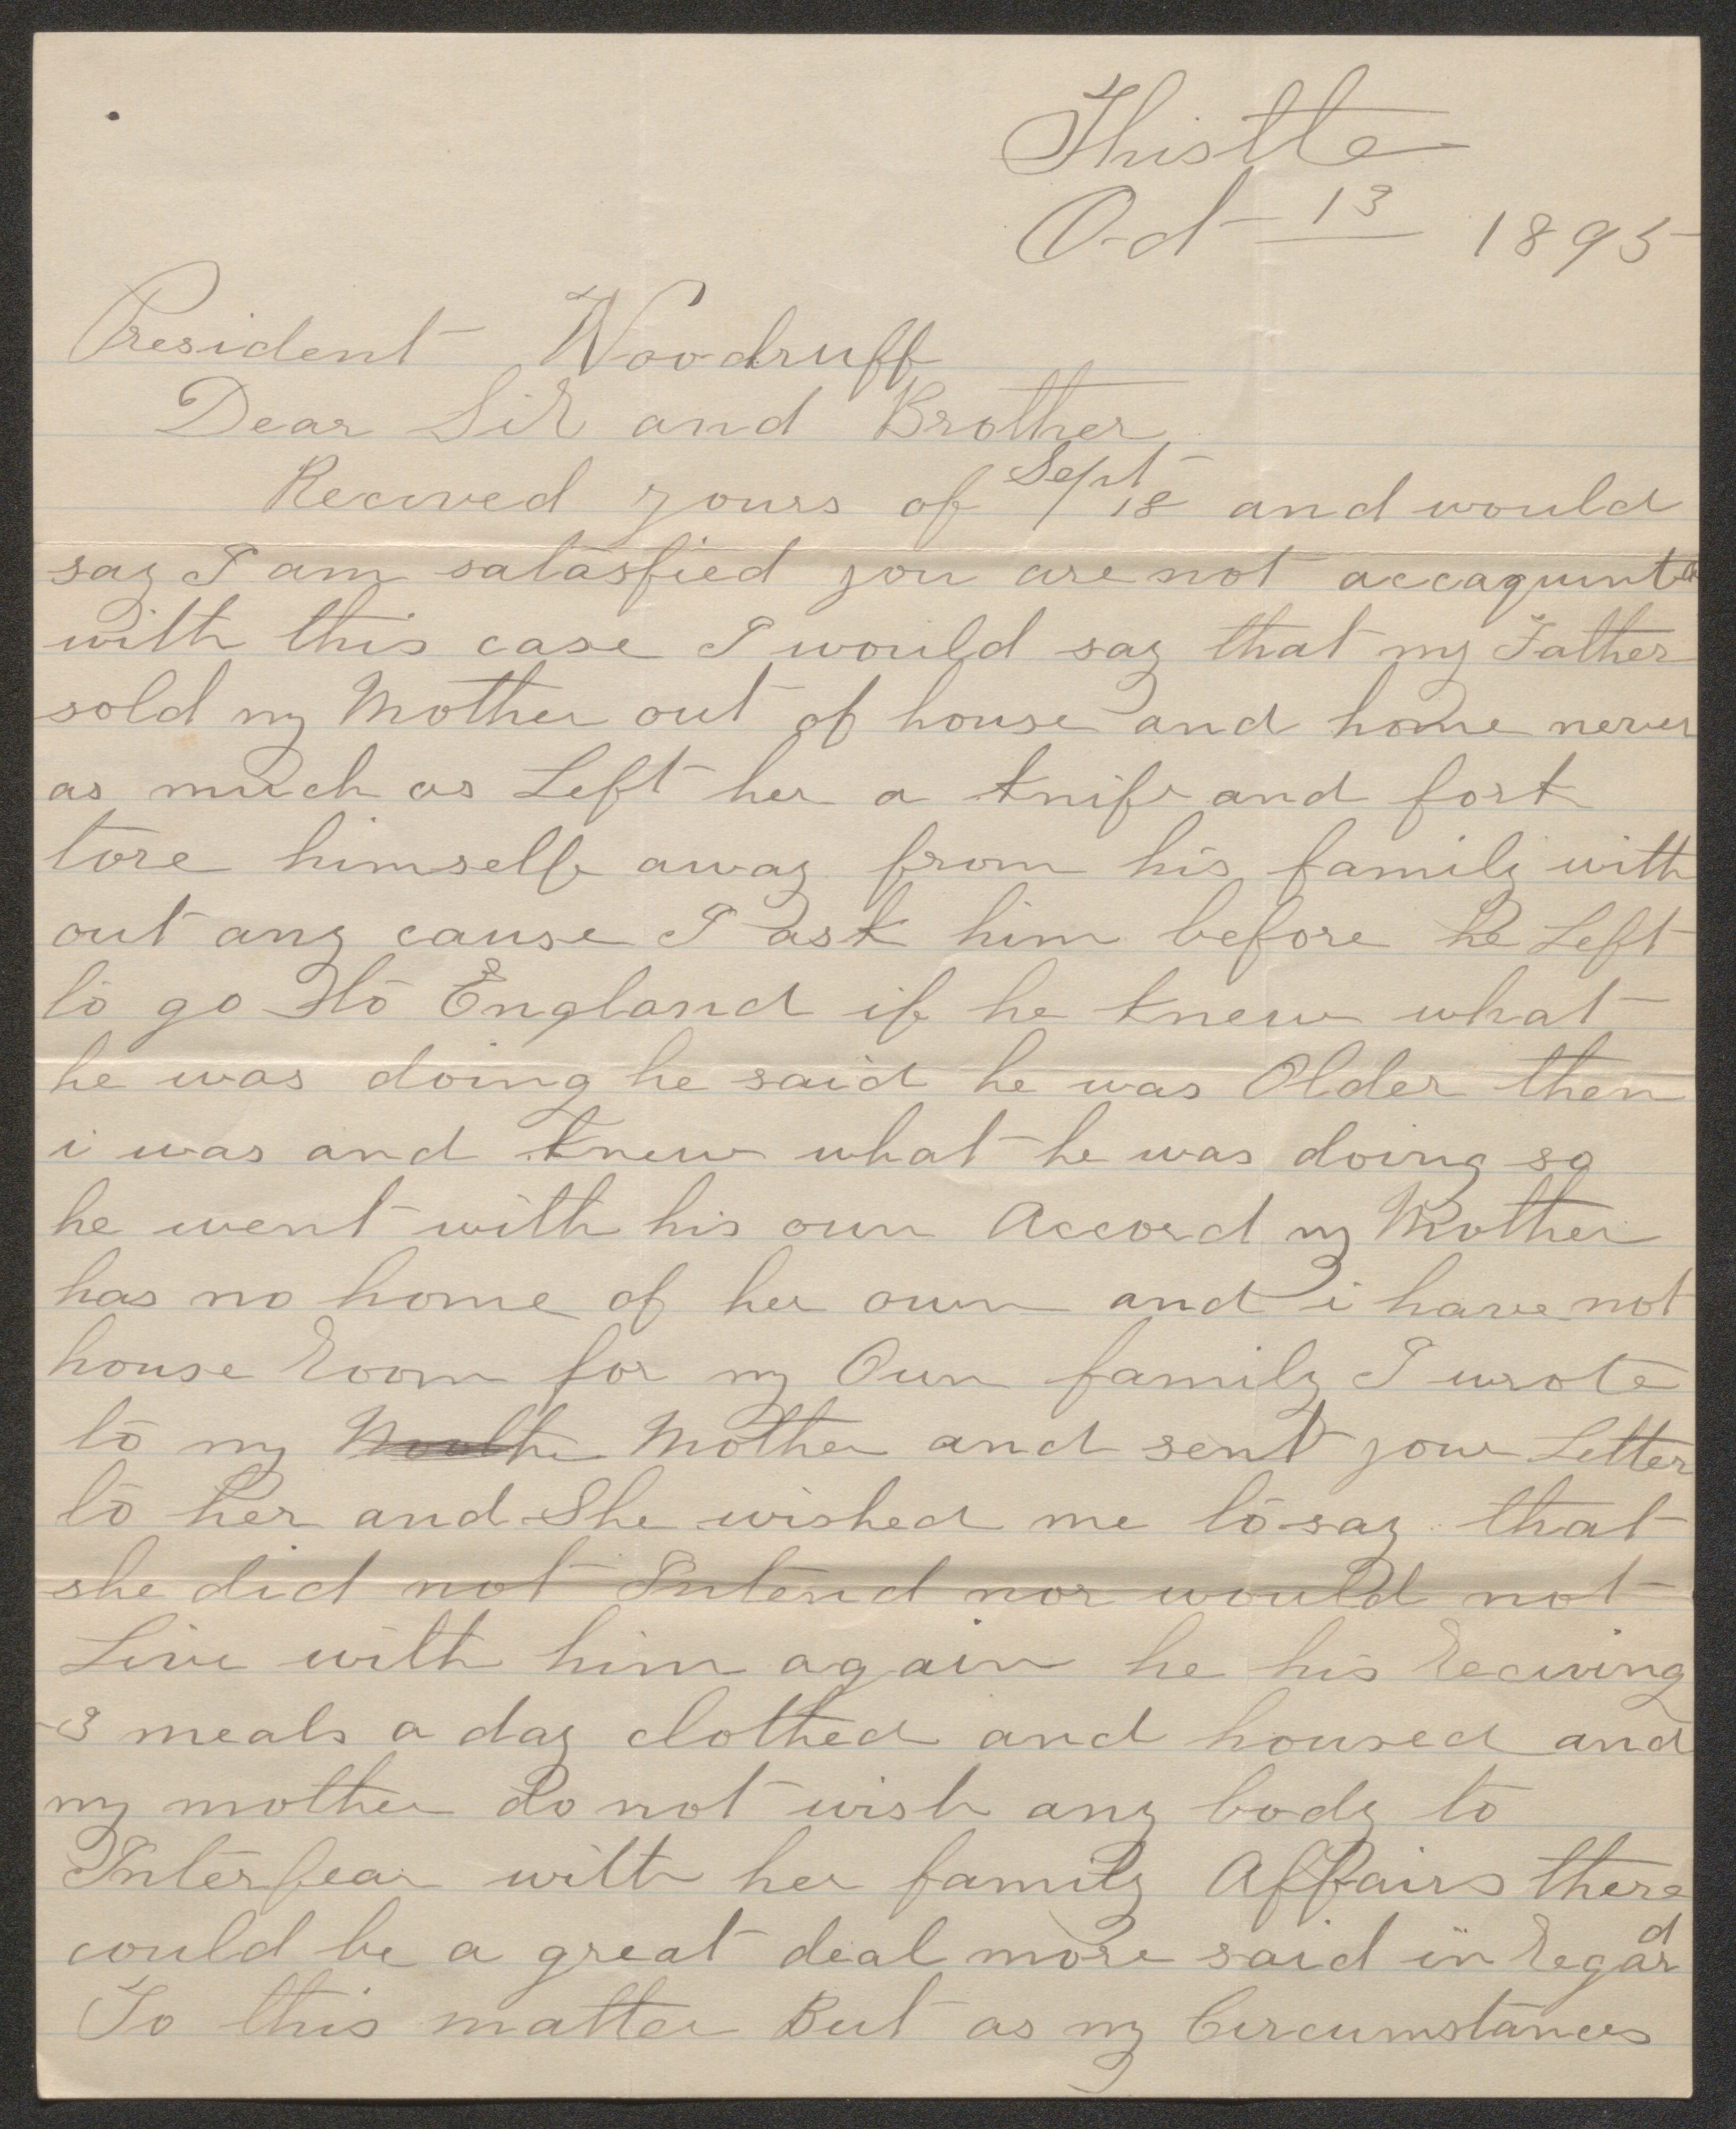 Thistle
Oct 13 1895
President Woodruff
Dear Sir and Brother,
Recived yours of Sept 18 and would
say I am satasfied you are not accaquinted
with this case I would say that my Father
sold my Mother out of house and home never
as much as Left her a knife and fork
tore himself away from his family with
out any cause I ask him before he Left
to go to England if he knew what
he was doing he said he was Older then
i was and knew what he was doing so
he went with his own Accord my Mother
has no home of her own and i have not
house room for my Own family I wrote
to my Mother and sent your Letter
to her and She wished me to say that
she did not Intend nor would not
Live with him again he his reciving
3 meals a day clothed and housed and
my mother do not wish any body to
Interfear with her family Affairs there
could be a great deal more said in regard
To this matter But as my Circumstances